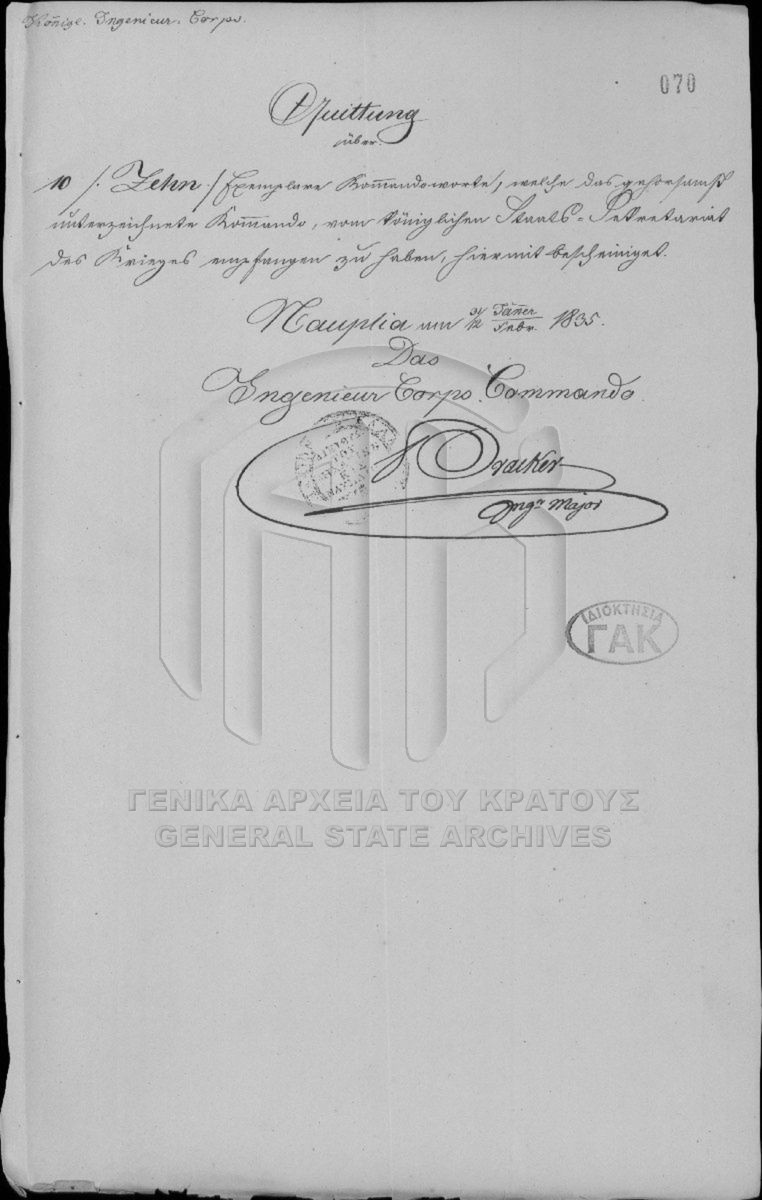 Königl. Ingenieur. Corps.
070
Quittung
über
10 /. Zehn ./ Exemplare Kom̄andoworte, welche das gehorsamst
unterzeichnete Kom̄ando, vom königlichen Staats-Sekretariat
des Krieges empfangen zu haben, hiermit bescheiniget.
Nauplia am 31/12 Jäner/Febr. 1835.
Das
Ingenieur Corps Commando
Ingr Major
ΙΔΙΟΚΤΗΣΙΑ
ΓΑΚ
ΓΕΝΙΚΑ ΑΡΧΕΙΑ ΤΟΥ ΚΡΑΤΟΥΣ
GENERAL STATE ARCHIVES